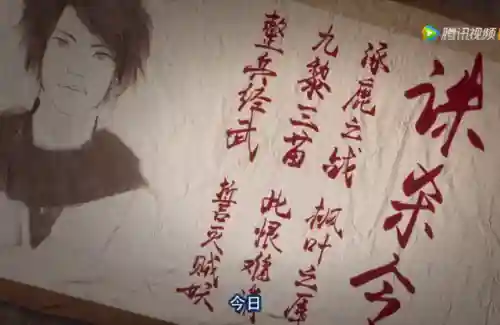 腾讯视频
诛杀令
涿鹿之战 枫叶之
九黎三苗 此恨难消
整兵经武 誓灭贼妖
今日